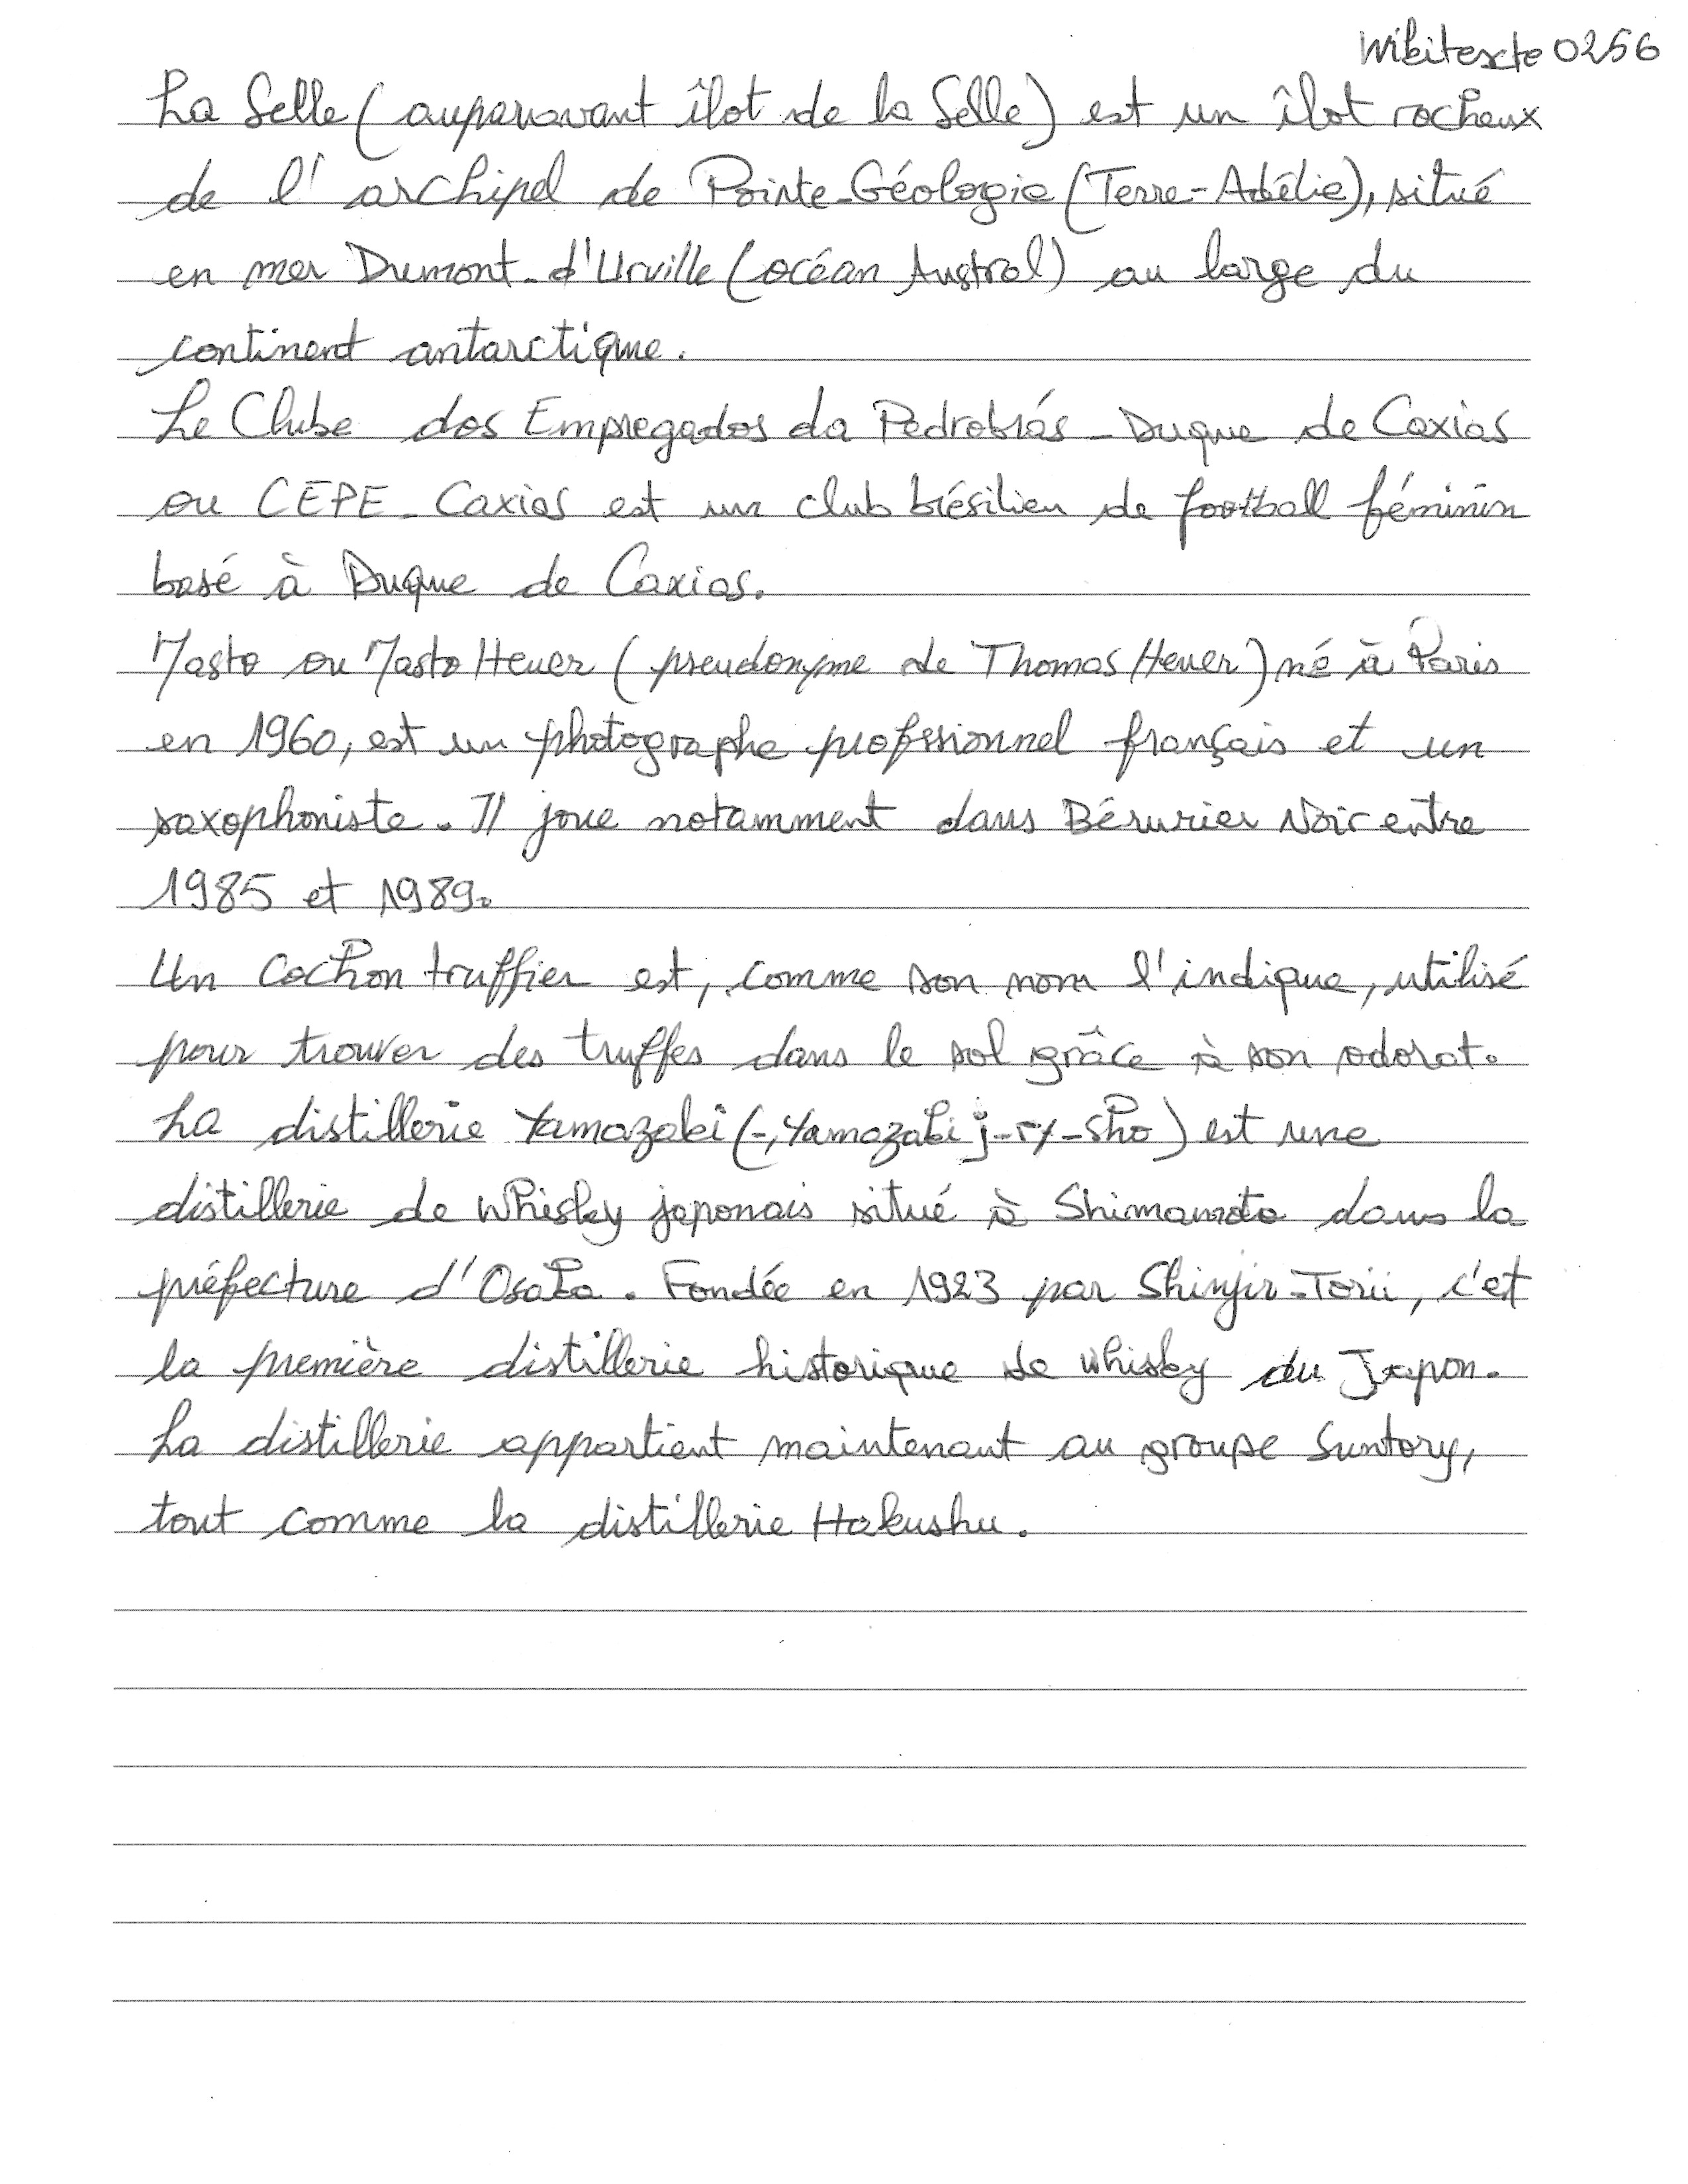 Wikitexte 0256
La Selle (auparavant îlot de la Selle) est un îlot rocheux
de l'archipel de Pointe-Géologie (Terre-Adélie), situé
en mer Dumont-d'Urville (océan Austral) au large du
continent antarctique.
Le Clube dos Empregados da Pedrobrás - Duque de Caxias
ou CEPE-Caxias est un club brésilien de football féminin
basé à Duque de Caxias.
Masto ou Masto Heuer (pseudonyme de Thomas Heuer) né à Paris
en 1960, est un photographe profssionnel français et un
saxophoniste. Il joue notamment dans Bérurier Noir entre
1985 et 1989.
Un Cochon truffier est, comme son nom l'indique, utilisé
pour trouver des truffes dans le sol grâce à son odorat.
La distillerie Yamazaki (-, Yamazaki j-ry-sho) est une
distillerie de whisky japonais situé à Shimamoto dans la
préfecture d'Osaka. Fondée en 1923 par Shinjir-Torii, c'et
la première distillerie historique de whisky du Japon.
La distillerie appartient maintenant au groupe Suntory,
tout comme la distillerie Hakushu.